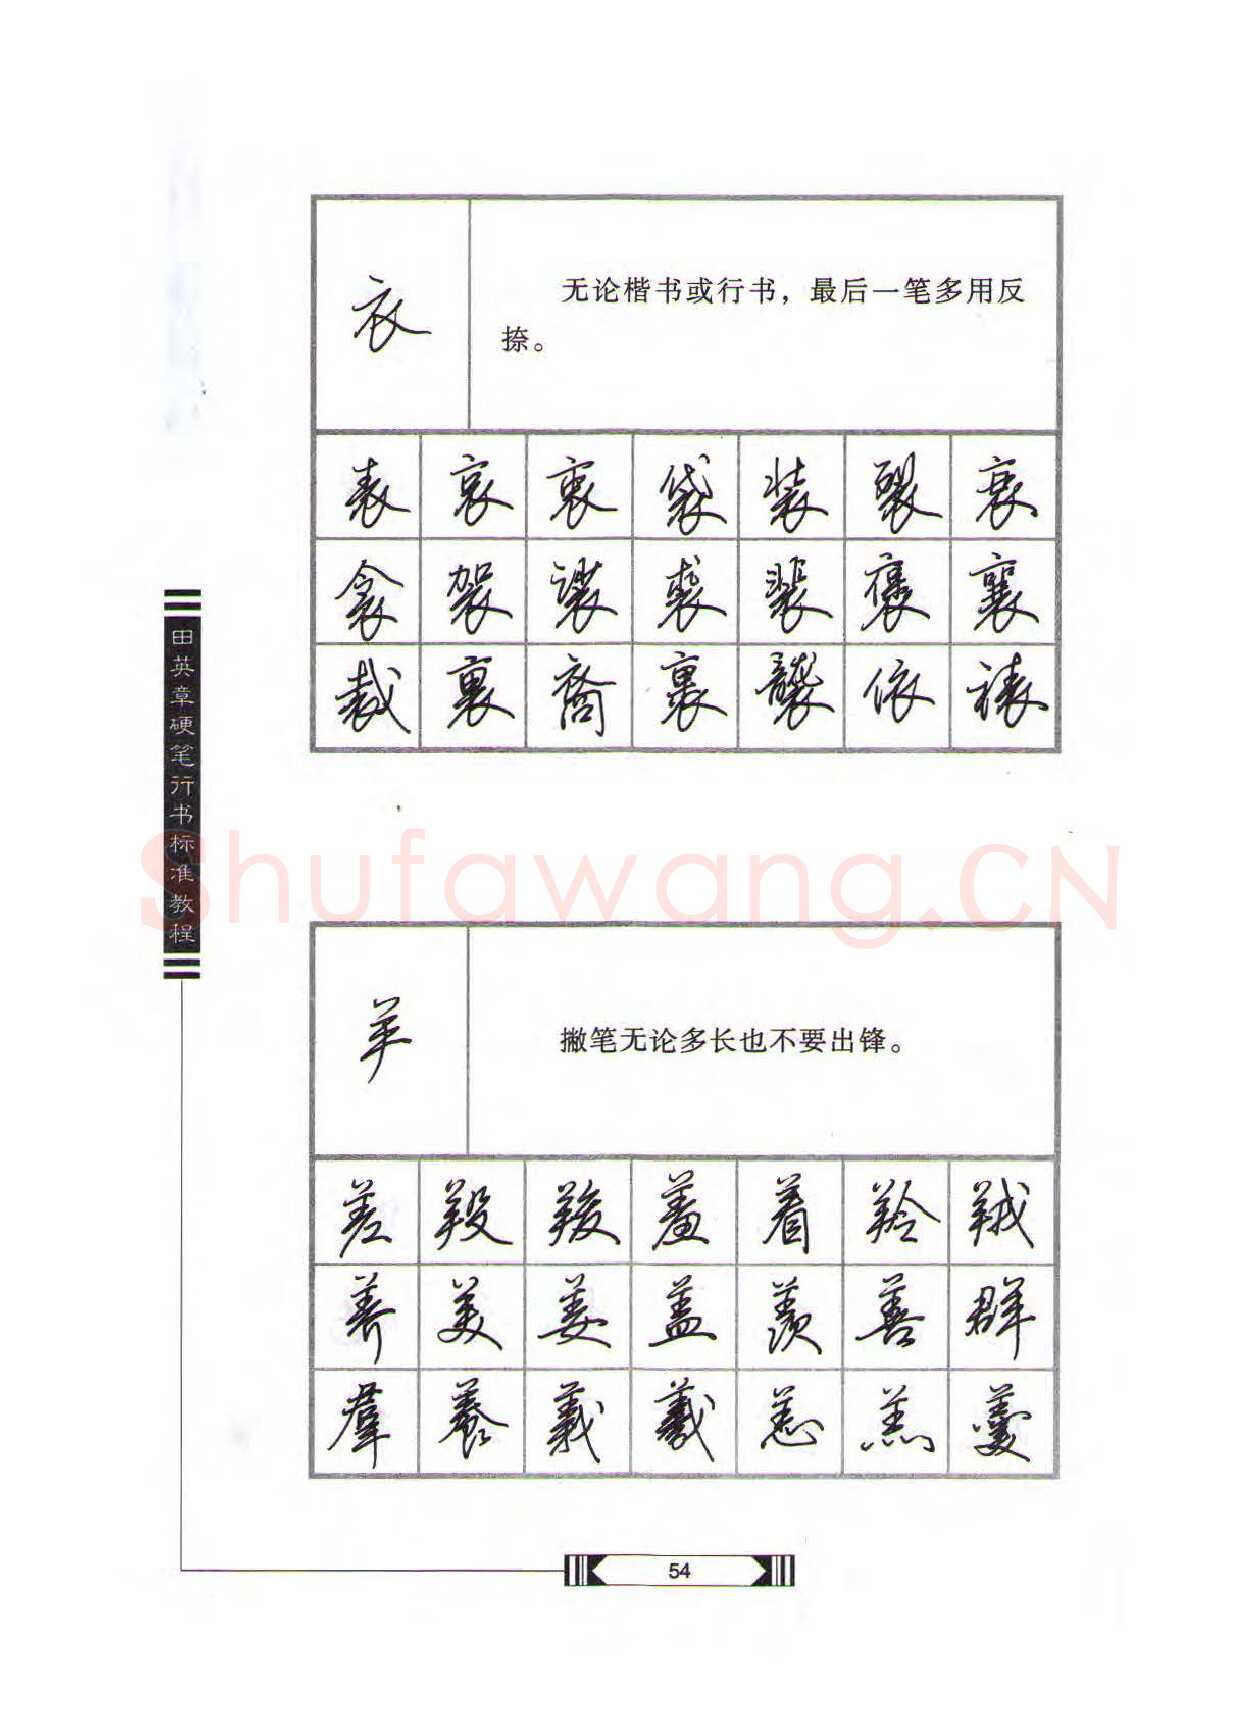 衣
无论楷书或行书，最后一笔多用反
捺。
表 哀 衷 袋 装 裂 衰
衾 袈 裟 裘 裴 褒 襄
裁 裹 裔 裹 袭 依 裱
田英章硬笔行书标准教程
Shufawang.CN
羊
撇笔无论多长也不要出锋。
差 羖 羧 羞 着 羚 羢
养 美 姜 盖 羡 善 群
羣 養 義 羲 恙 羔 羹
54